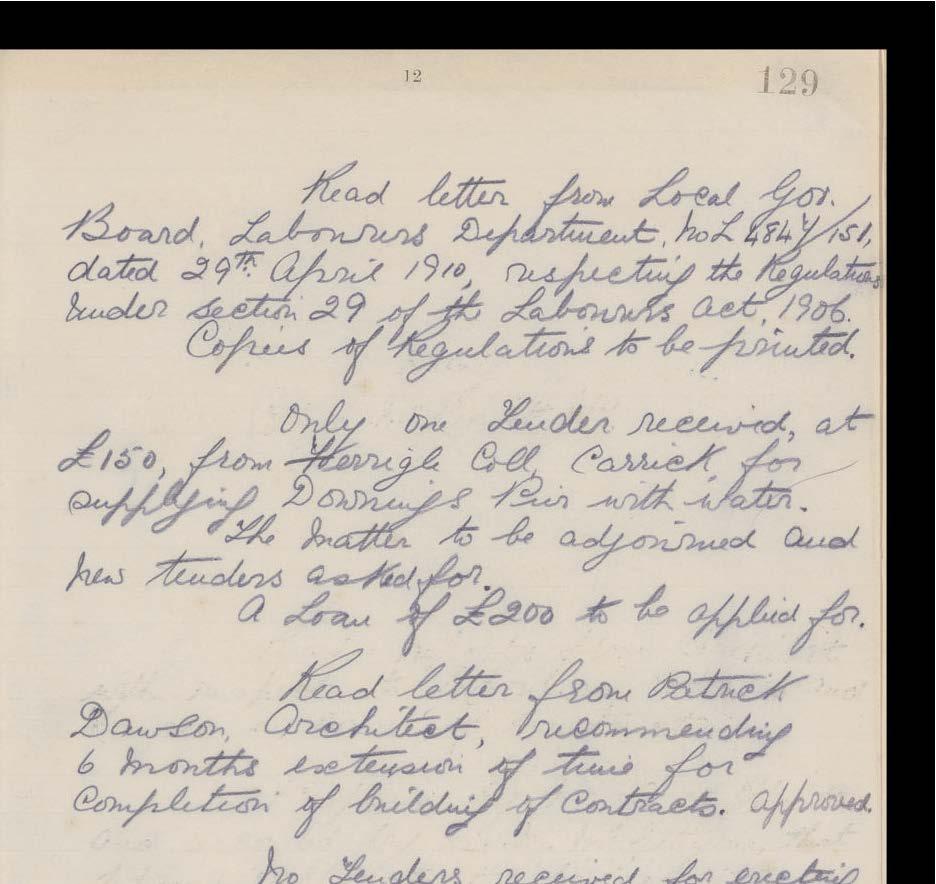 12
129
Read letter from Local Gov.
Board, Labourers Department, No L 4847/151,
dated 29th. April 1910, respecting the Regulations
under section 29 of the Labourers Act, 1906.
Copies of Regulations to be printed.
Only one Tender received, at
£150, from Coll, Carrick, for
supplying Downings Pier with water.
The Matter to be adjourned and
new tenders asked for.
A Loan of £200 to be applied for.
Read letter from Patrick
Dawson, Architect, recommending
6 Months extension of time for
completion of building of contracts. approved.
No Tenders received for erecting